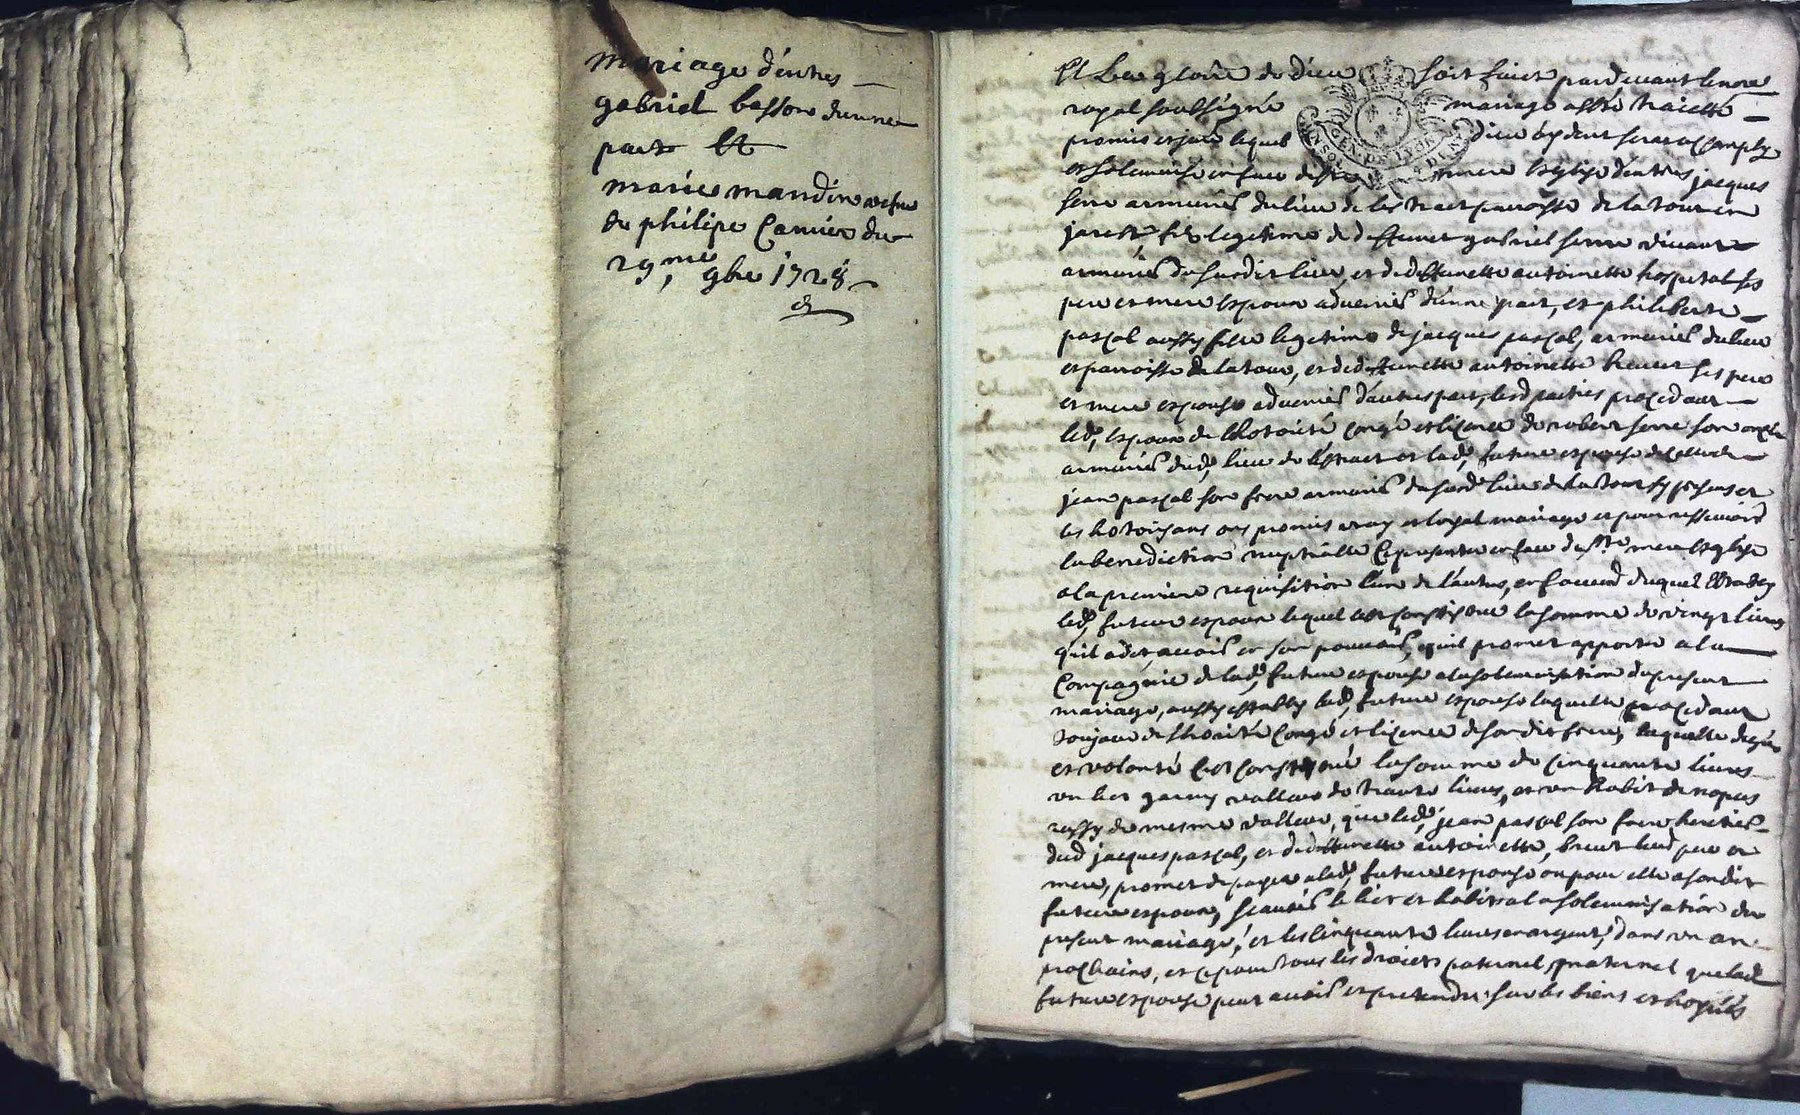 mariage d'entres
gabriel basson d'unne
part et
marie mandin vefve
de philipe Canier du
29me 9bre 1728
A La gloire de dieu soit faict pardevant le nore
royal soussigné mariage assté traicté
promis et juré lequel dieu aydant sera accomply
et solemnisé en face de ste mere esglise d'entres jacques
serre armurier du lieu de lestract parroisse de la tour en
jarest, fils legitime de deffunct gabriel serre vivant
armurier du susdit lieu, et de deffunctte antoinette hospital ses
pere et mere espoux advenir d'unne part, et philiberte
pascal aussy fille legitime de jacques pascal, armurier du lieu
et parroisse de la tour, et de deffunctte antoinette breuet ses pere
et mere espouse advenir d'autres part, lesd parties procedant
led, espoux de lhotorité congé et licence de robert serre son oncle
armurier dud, lieu de lestract et lad, future espouse de celle de
jean pascal son frere armurier du susd lieu de la tour cy presens et
les hotorisans ont promis vray et loyal mariage et pour
la benediction nuptialle ce presenter en face de ste mere esglise
a la premiere requisition l'un de l'autre, en faveur duquel estably
led, futeur espoux lequel c'est constitué la somme de vingt livres
qu'il a dit, avoir en son pouvoir, qu'il promet apporter a la
Compagnie de lad, future espouse a la solemnisation du present
mariage, aussy estably lad, future espouse laquelle procedant
toujour de lhorité congé et licence de son dit frere, laquelle de gré
et volonté c'est constitué la somme de cinquante livres
un lict garny valleur de trante livres, et un habit de nopces
aussy de mesme valleur, que led, jean pascal son frere heretier
dud jacques pascal, et de deffunctte antoinette, breuet leurd pere et
mere, promet de payer a lad, future espouse ou pour elle a son dit
futeur espoux, scavoir le lict et habit a la solemnisation du
present mariage, et les cinquante livres en argent, dans un an
prochains, et ce pour tous les droicts paternel, maternel que lad
future espouse peut avoir et pretendre sur les biens et hoyries